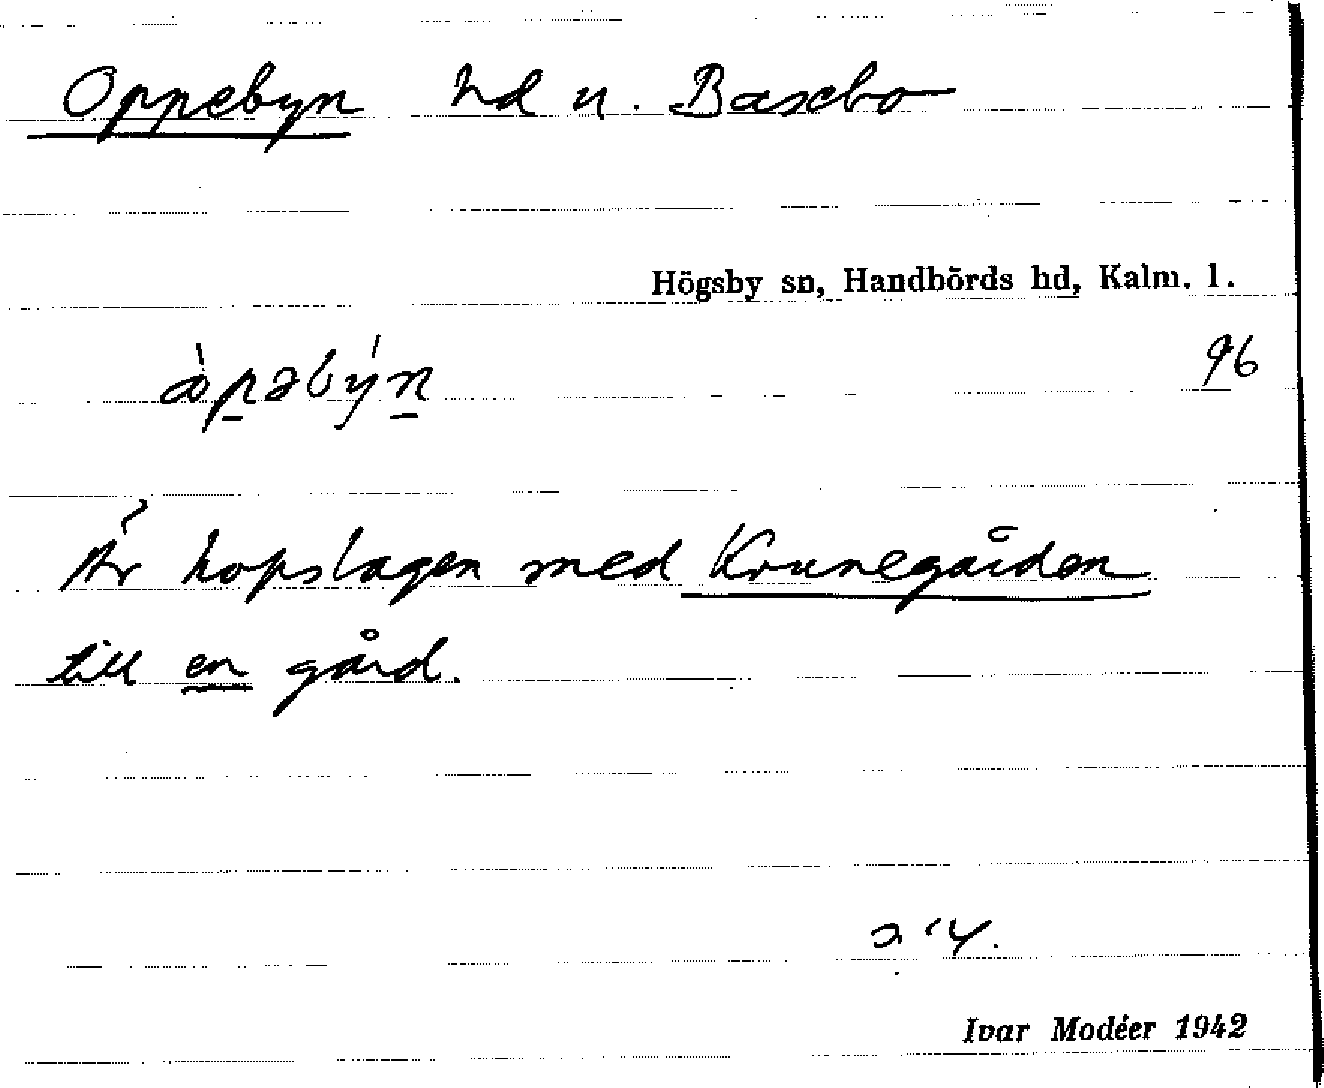 Oppebyn hd u. Baxebo
Högsby sn, Handbörds hd, Kalm. l.
96
Är hopslagen med Krunegården
till en gård.
Ivar Modéer 1942